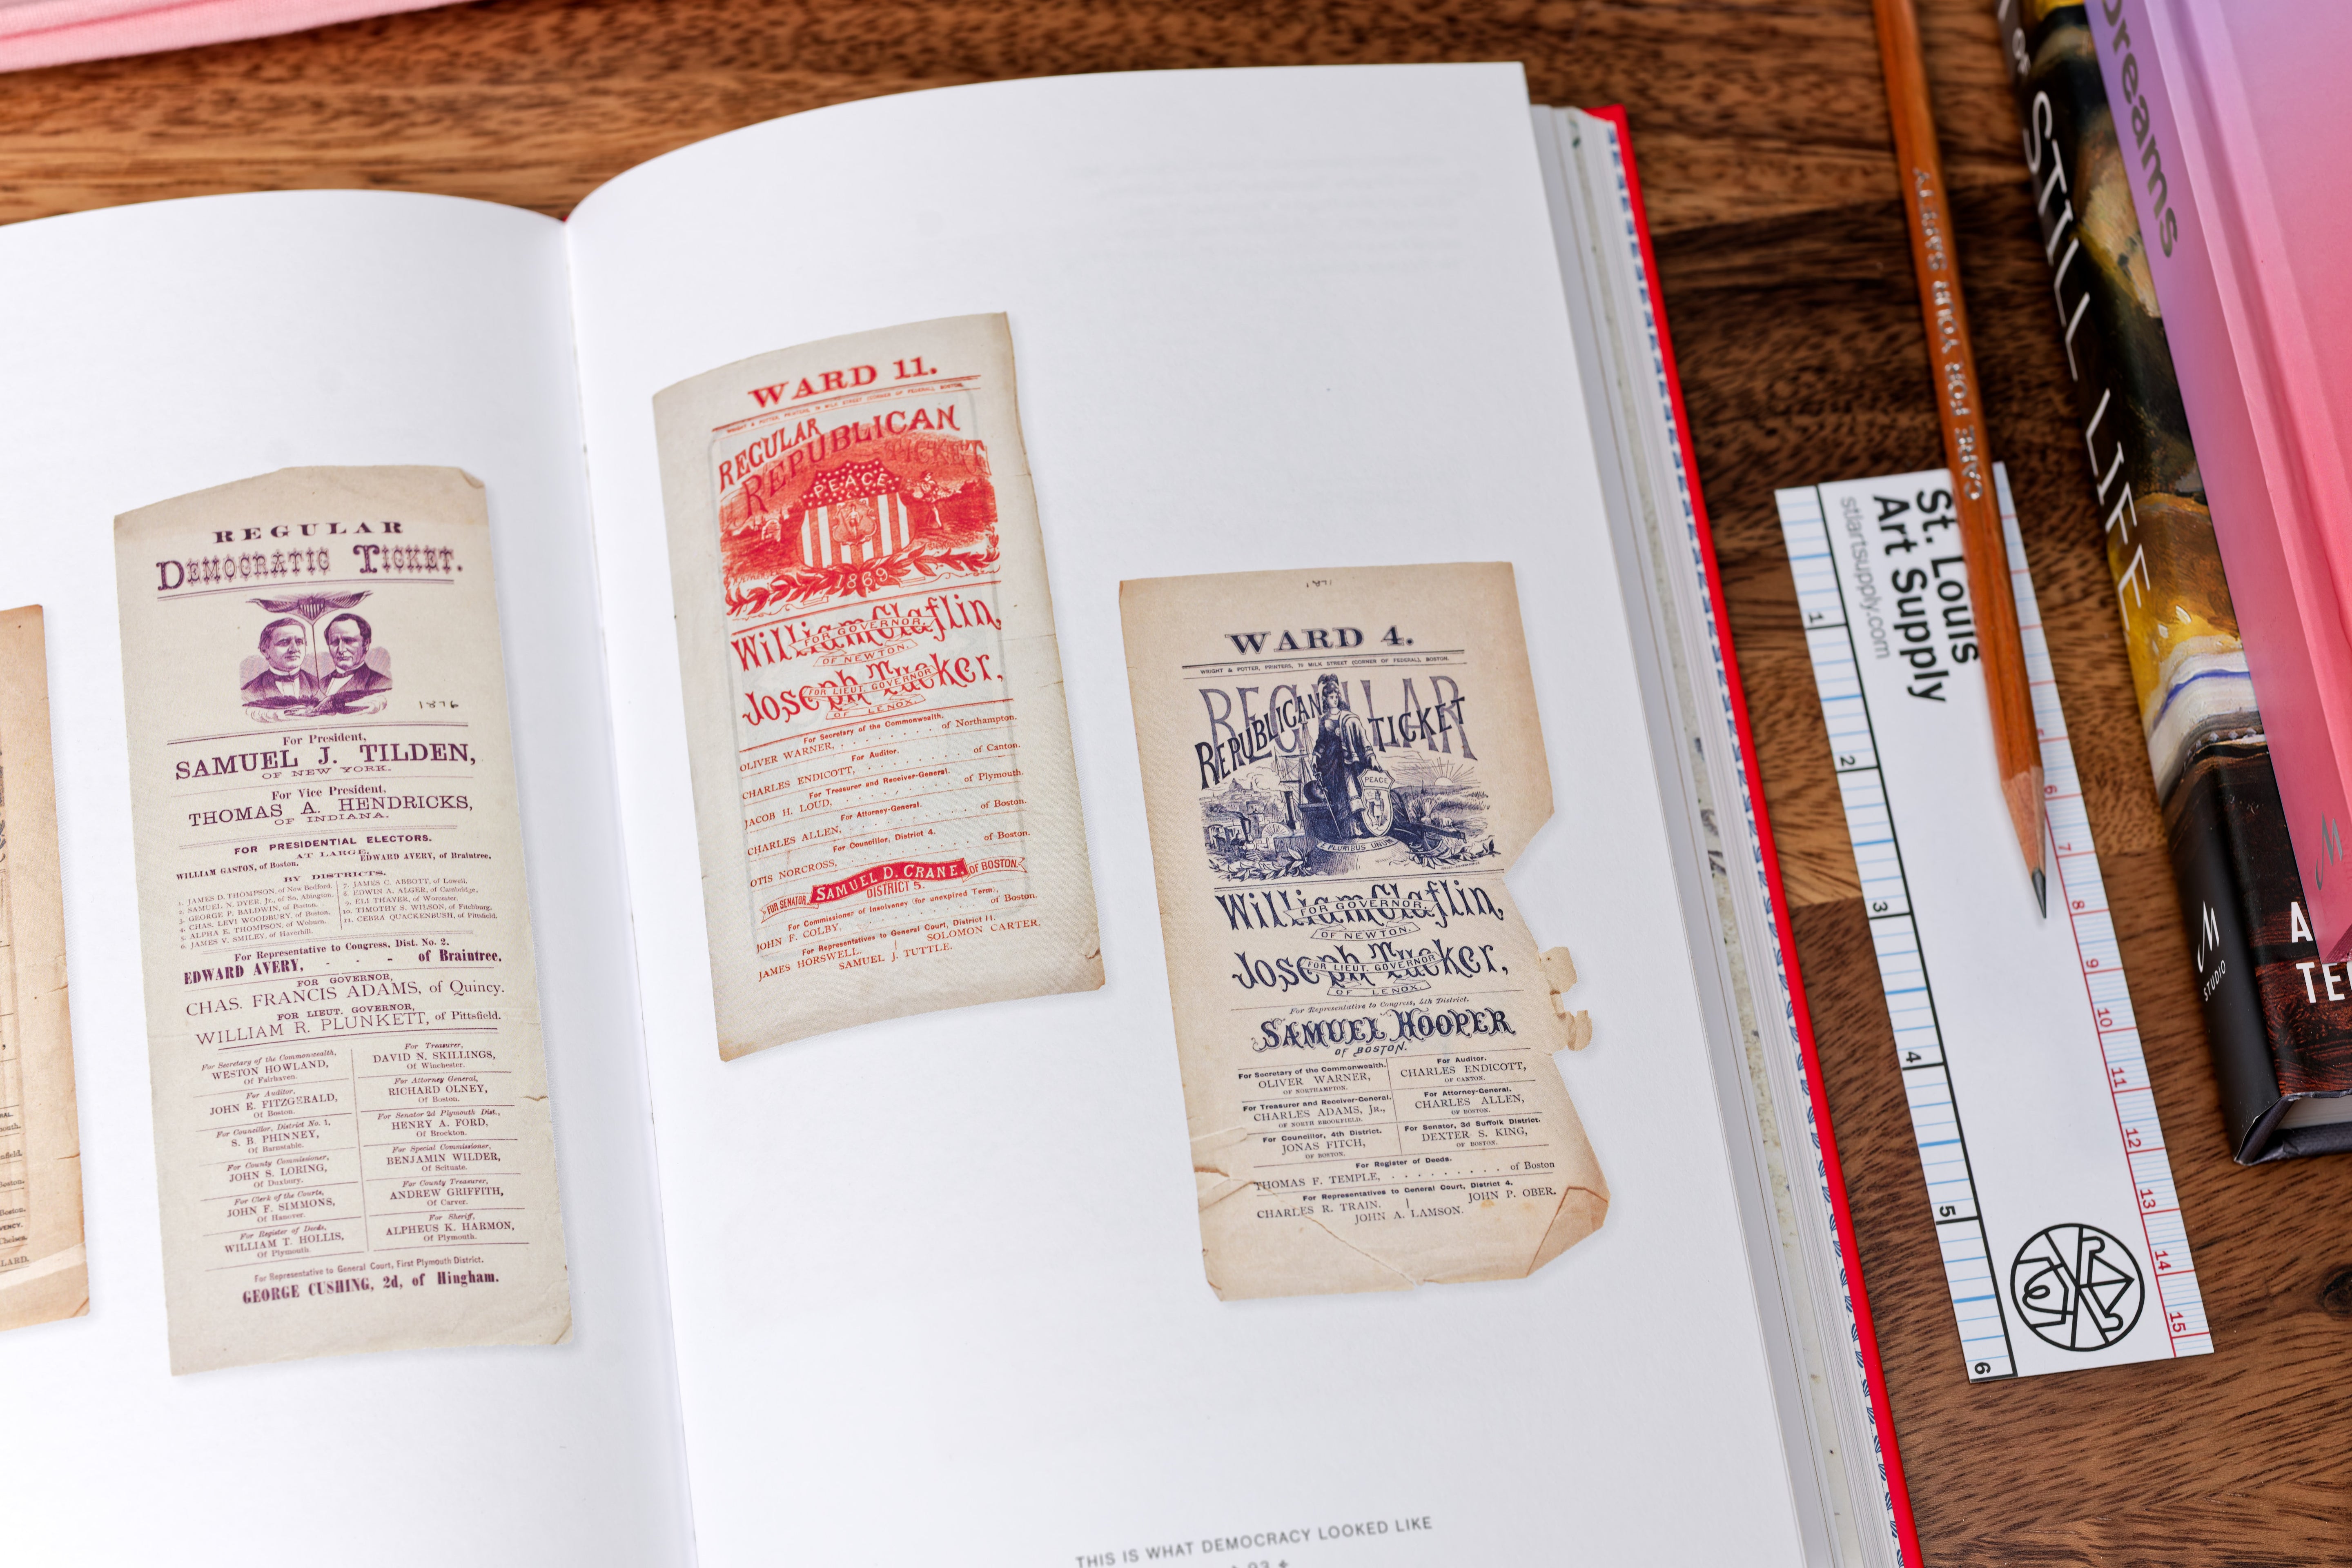 REGULAR
DEMOCRATIC TICKET.
1876
For President,
SAMUEL J. TILDEN,
OF NEW YORK.
For Vice President,
THOMAS A. HENDRICKS,
OF INDIANA.
FOR PRESIDENTIAL ELECTORS.
AT LARGE,
WILLIAM GASTON, of Boston. EDWARD AVERY, of Braintree.
BY DISTRICTS.
1. JAMES D. THOMPSON, of New Bedford.
2. SAMUEL N. DYER, Jr., of So. Abington.
3. GEORGE P. BALDWIN, of Boston.
4. CHAS. LEVI WOODBURY, of Boston.
5. ALPHA E. THOMPSON, of Woburn.
6. JAMES V. SMILEY, of Haverhill.
7. JAMES C. ABBOTT, of Lowell.
8. EDWIN A. ALGER, of Cambridge.
9. ELI THAYER, of Worcester.
10. TIMOTHY S. WILSON, of Fitchburg.
11. CEBRA QUACKENBUSH, of Pittsfield.
For Representative to Congress, Dist. No. 2.
EDWARD AVERY, - - - of Braintree.
FOR GOVERNOR,
CHAS. FRANCIS ADAMS, of Quincy.
FOR LIEUT. GOVERNOR,
WILLIAM R. PLUNKETT, of Pittsfield.
For Secretary of the Commonwealth,
WESTON HOWLAND,
Of Fairhaven.
For Auditor,
JOHN E. FITZGERALD,
Of Boston.
For Councillor, District No. 1,
S. B. PHINNEY,
Of Barnstable.
For County Commissioner,
JOHN S. LORING,
Of Duxbury.
For Clerk of the Courts,
JOHN F. SIMMONS,
Of Hanover.
For Register of Deeds,
WILLIAM T. HOLLIS,
Of Plymouth.
For Treasurer,
DAVID N. SKILLINGS,
Of Winchester.
For Attorney General,
RICHARD OLNEY,
Of Boston.
For Senator 2d Plymouth Dist.,
HENRY A. FORD,
Of Brockton.
For Special Commissioner,
BENJAMIN WILDER,
Of Scituate.
For County Treasurer,
ANDREW GRIFFITH,
Of Carver.
For Sheriff,
ALPHEUS K. HARMON,
Of Plymouth.
For Representative to General Court, First Plymouth District.
GEORGE CUSHING, 2d, of Hingham.
WARD 11.
WRIGHT & POTTER, PRINTERS, 79 MILK STREET (CORNER OF FEDERAL), BOSTON.
REGULAR
REPUBLICAN
TICKET
PEACE
1869
William Claflin,
FOR GOVERNOR
OF NEWTON.
Joseph Tucker,
FOR LIEUT. GOVERNOR
OF LENOX.
For Secretary of the Commonwealth.
OLIVER WARNER, of Northampton.
For Auditor.
CHARLES ENDICOTT, of Canton.
For Treasurer and Receiver-General.
JACOB H. LOUD, of Plymouth.
For Attorney-General.
CHARLES ALLEN, of Boston.
For Councillor, District 4.
OTIS NORCROSS, of Boston.
FOR SENATOR SAMUEL D. CRANE, OF BOSTON.
DISTRICT 5.
For Commissioner of Insolvency (for unexpired Term),
JOHN F. COLBY, of Boston.
For Representatives to General Court, District 11.
JAMES HORSWELL. SOLOMON CARTER.
SAMUEL J. TUTTLE.
WARD 4.
WRIGHT & POTTER, PRINTERS, 79 MILK STREET (CORNER OF FEDERAL), BOSTON.
REGULAR
REPUBLICAN TICKET
PEACE
E PLURIBUS UNUM
William Claflin,
FOR GOVERNOR
OF NEWTON.
Joseph Tucker,
FOR LIEUT. GOVERNOR
OF LENOX.
For Representative to Congress, 4th District.
SAMUEL HOOPER
OF BOSTON.
For Secretary of the Commonwealth.
OLIVER WARNER,
OF NORTHAMPTON.
For Auditor.
CHARLES ENDICOTT,
OF CANTON.
For Treasurer and Receiver-General.
CHARLES ADAMS, Jr.,
OF NORTH BROOKFIELD.
For Attorney-General.
CHARLES ALLEN,
OF BOSTON.
For Councillor, 4th District.
JONAS FITCH,
OF BOSTON.
For Senator, 3d Suffolk District.
DEXTER S. KING,
OF BOSTON.
For Register of Deeds.
THOMAS F. TEMPLE, of Boston
For Representatives to General Court, District 4.
CHARLES R. TRAIN. JOHN P. OBER.
JOHN A. LAMSON.
THIS IS WHAT DEMOCRACY LOOKED LIKE
St. Louis
Art Supply
stlartsupply.com
1
2
3
4
5
6
6
7
8
9
10
11
12
13
14
15
OF STILL LIFE
STUDIO
Dreams